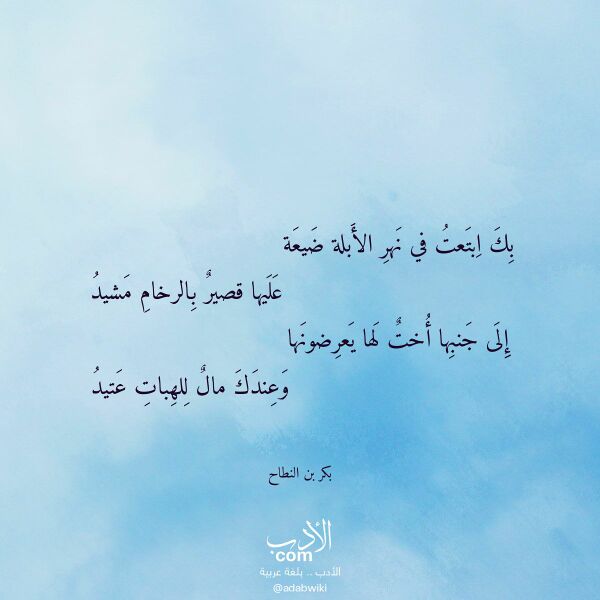 بِكَ اِبتَعتُ في نَهرِ الأَبلة ضَيعَة
عَلَيها قصيرٌ بِالرخامِ مَشيدُ
إِلَى جَنبِها أُختٌ لَها يَعرِضونَها
وَعِندَكَ مالٌ لِلهِباتِ عَتيدُ
بكر بن النطاح
الأدب
com
الأدب .. بلغة عربية
@adabwiki